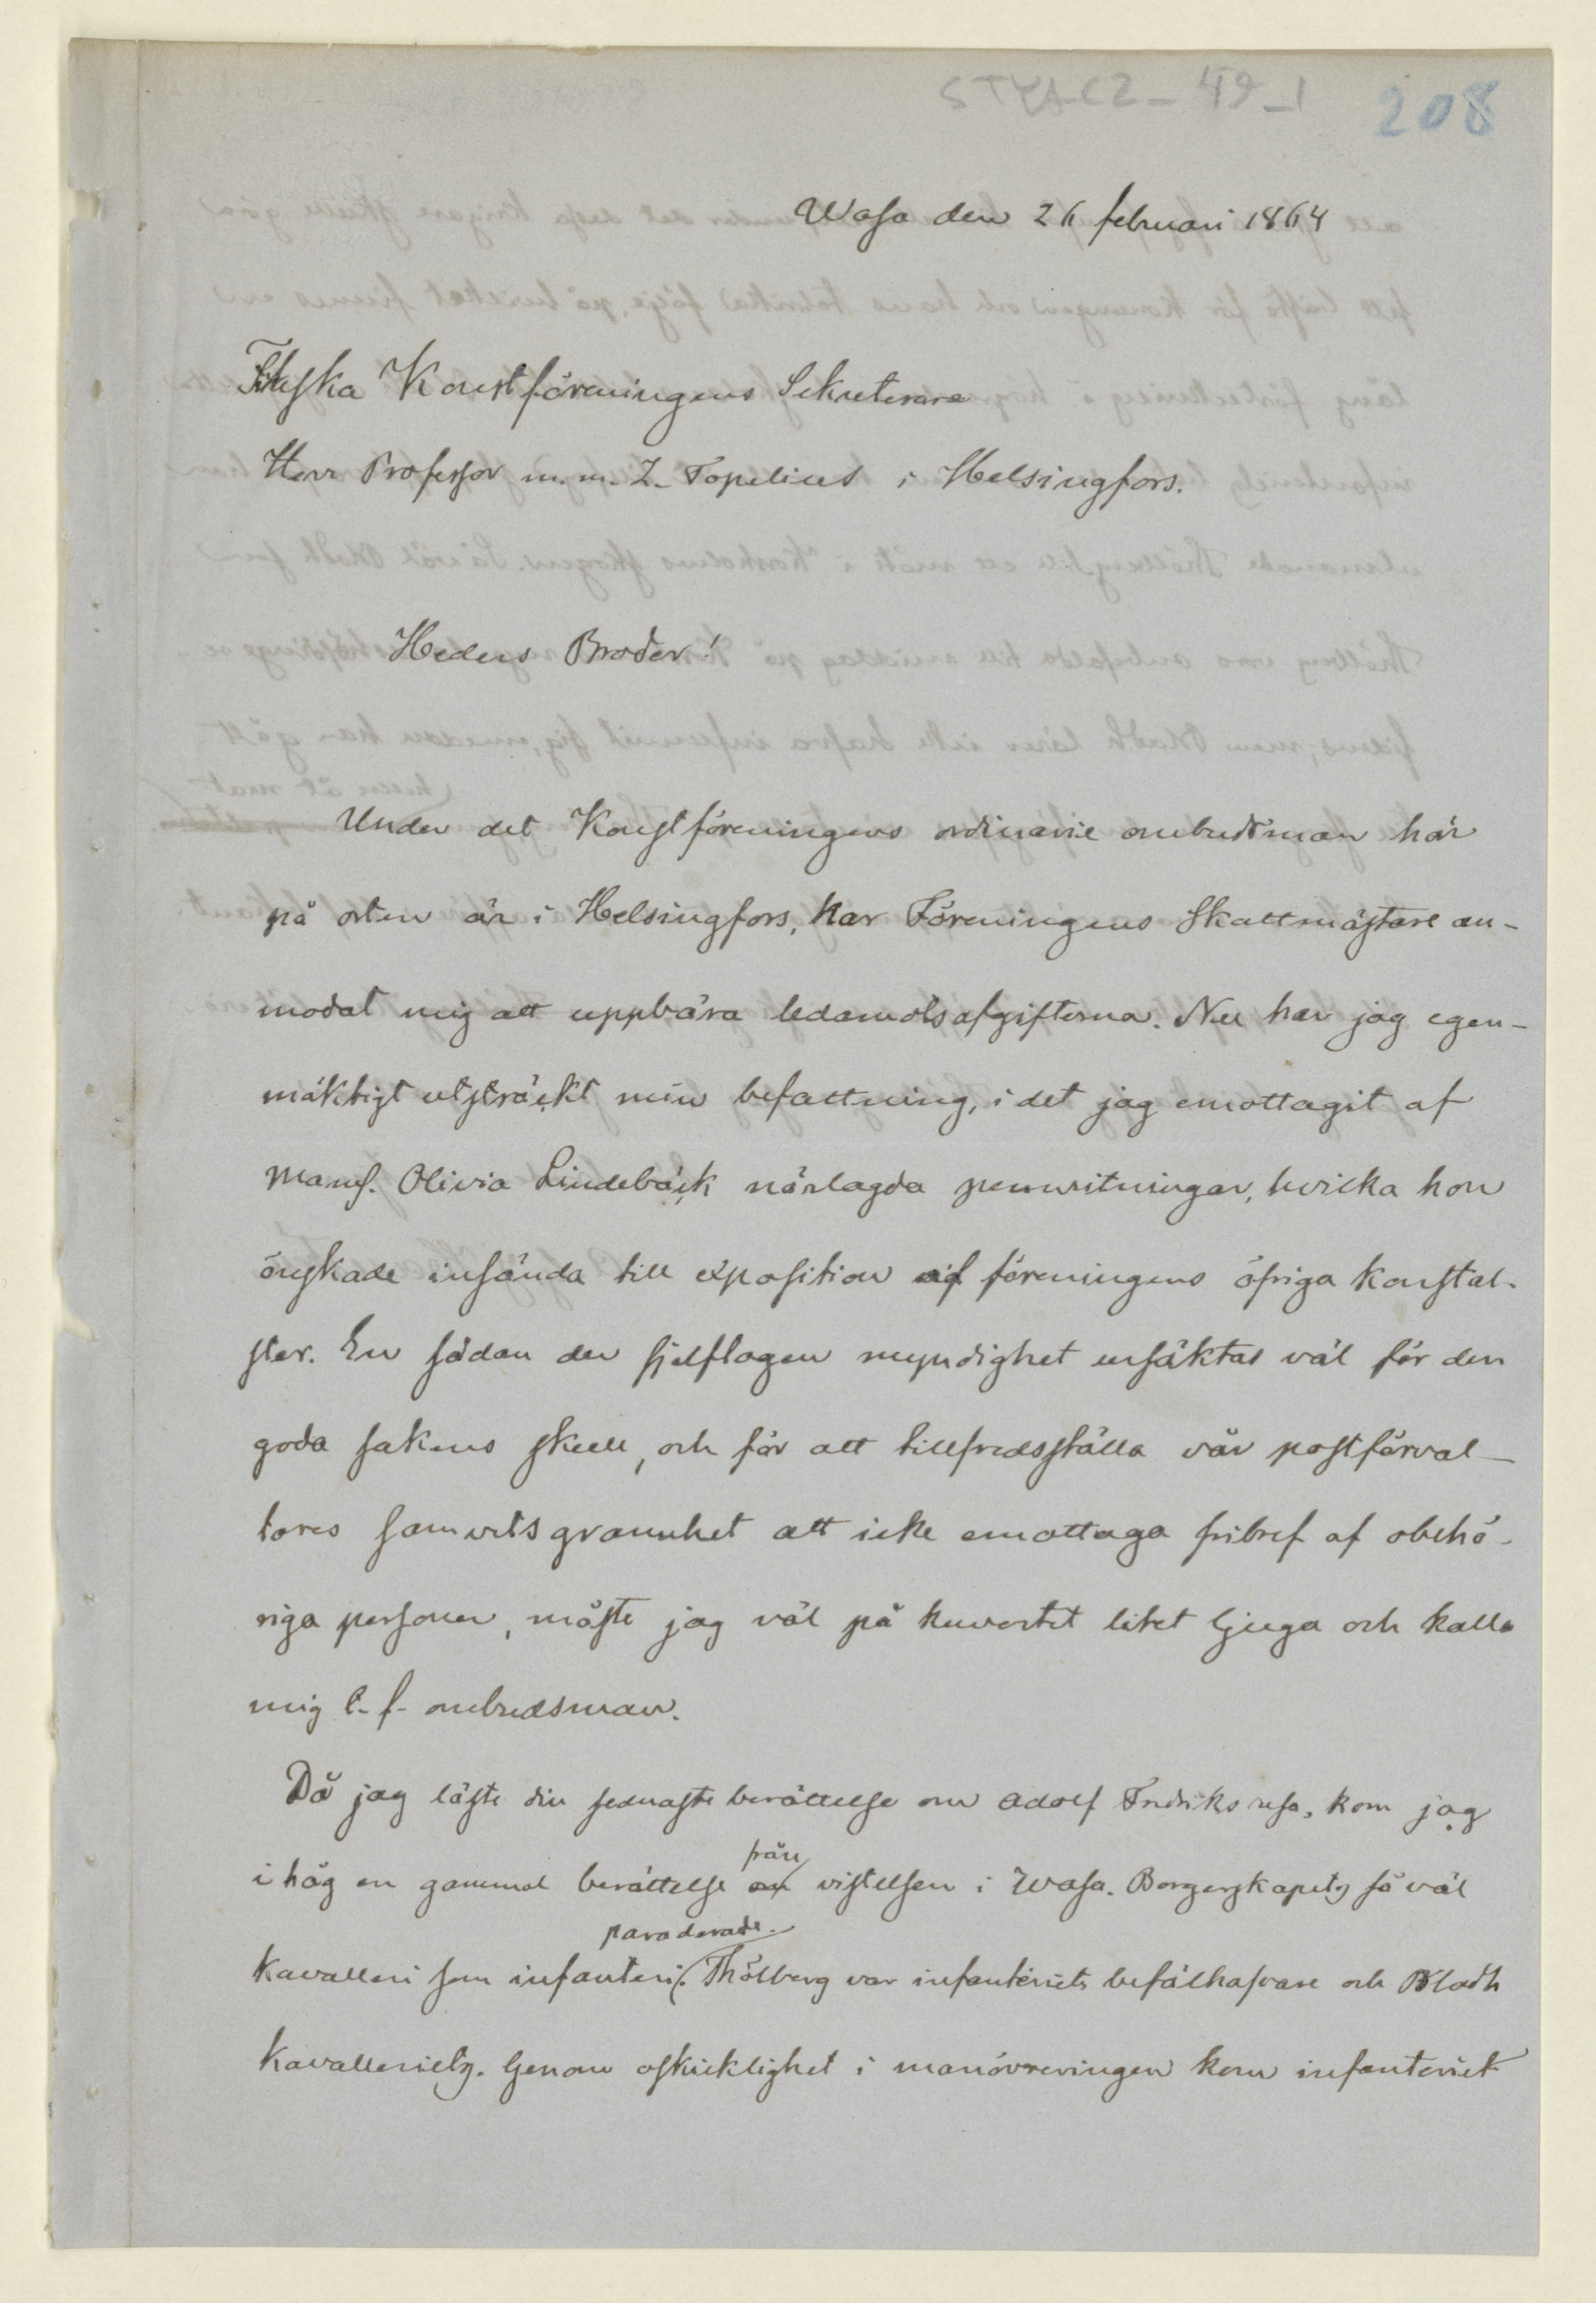 STYACZ_49_1 208
Wasa den 26 februari 1864
Finska Konstföreningens Sekreterare
Herr Professor m.m. Z. Topelius i Helsingfors.
Heders Broder!
Under det Konstföreningens ordinarie ombudsman här
på orten är i Helsingfors, har Föreningens Skattmästare an-
modat mig att uppbära ledamotsafgifterna. Nu har jag egen-
mäktigt utsträckt min befattning, i det jag emottagit af
Mams. Olivia Lindebäck närlagda pennritningar, hvilka hon
önskade insända till exposition af föreningens öfriga konstal-
ster. En sådan der sjelftagen myndighet ursäktas väl för den
goda sakens skull, och för att tillfredsställa vår postförval-
tares samvetsgrannhet att icke emottaga fribref af obehö-
riga personer, måste jag väl på kuvertet litet ljuga och kalla
mig t.f. ombudsman.
Då jag läste din sednaste berättelse om Adolf Fredriks resa, kom jag
i håg en gammal berättelse om från vistelsen i Wasa. Borgerskapets så väl
kavalleri som infanteri paraderade. Thölberg var infanteriets befälhafvare och Bladh
kavalleriets. Genom oskicklighet i manövreringen kom infanteriet